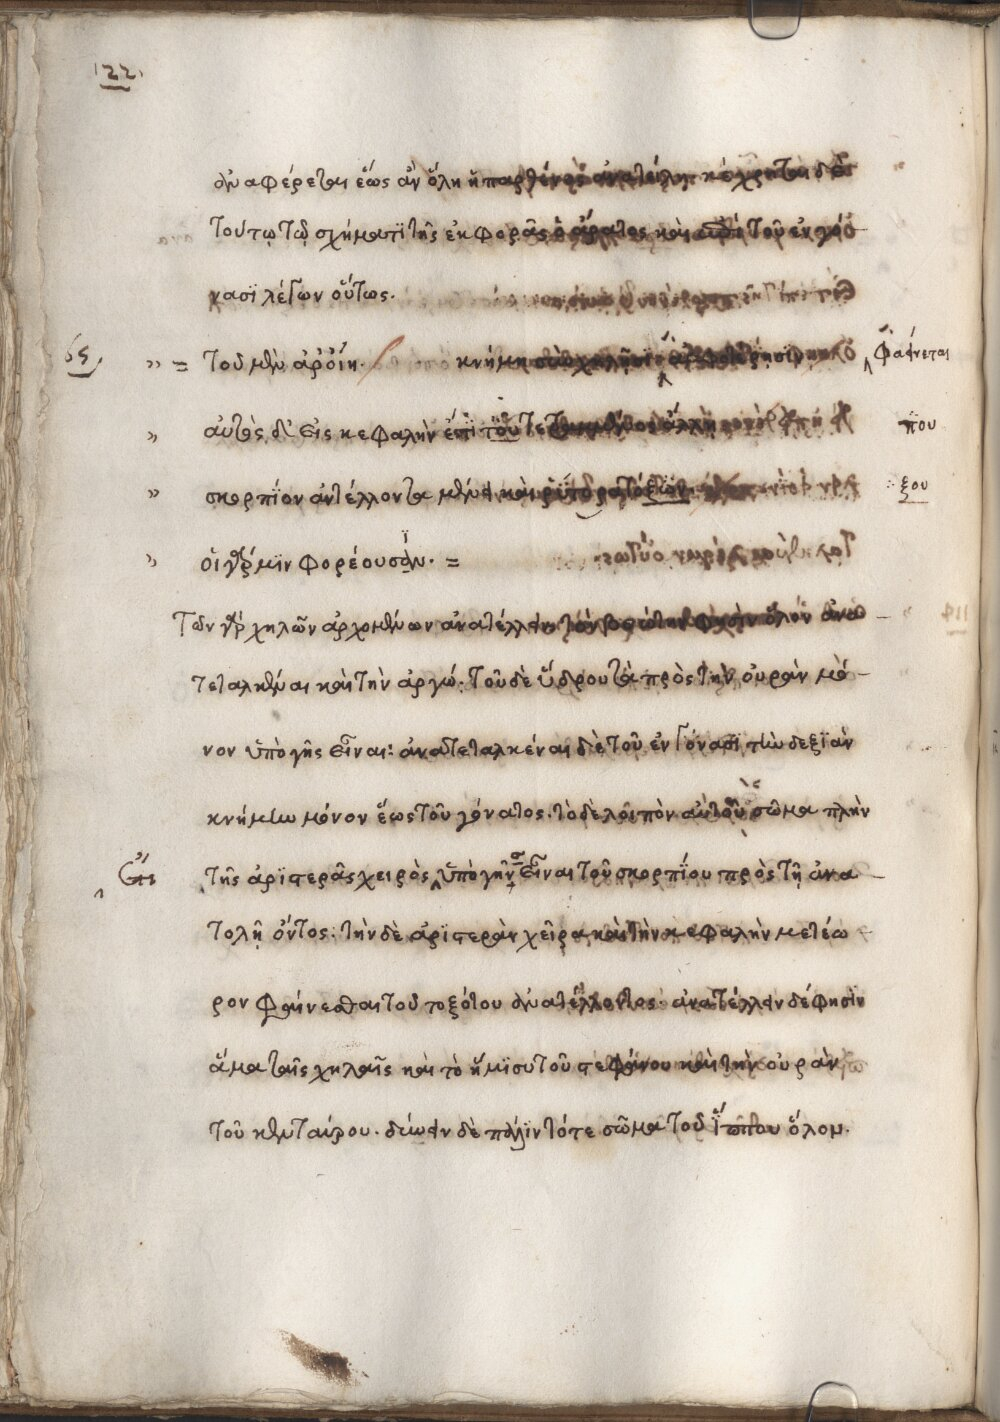 122
ἀναφέρεται ἕως ἂν ὅλη ἡ παρθένος ἀνατείλη κέχρηται δὲ
τούτῳ τῷ σχήματϊ τῆς ἐκφορᾶς ὁ ἄρατος καὶ ἐπὶ τοῦ ἐν γό
νασϊ λέγων οὕτως.
τοῦ μὲν ἄρ οἵη. κνήμη σὺν χηλῇσϊ φαίνεται
αὐτὸς δ' εἰς κεφαλὴν ἐπϊ τοῦ τετραμμένος ἄλλη που
σκορπίον ἀντέλλοντα μένει καὶ ῥύτορα τόξου
οἱ γάρ μϊν φορέουσϊν. =
τῶν γὰρ χηλῶν ἀρχομένων ἀνατέλλειν τὸν βοώτην φησὶν ὅλον ἀνα
τεταλκέναι καὶ τὴν ἀργώ. τοῦ δὲ ὕδρου τὰ πρὸς τὴν οὐρὰν μό
νον ὑπὸ γῆς εἶναι: ἀνατεταλκέναι δὲ τοῦ ἐν γόνασϊ τὴν δεξϊὰν
κνήμην μόνον ἕως τοῦ γόνατος. τὸ δὲ λοιπὸν αὐτοῦ σῶμα πλὴν
ἔτι τῆς ἀρϊστερᾶς χειρὸς ὑπὸ γῆν εἶναι τοῦ σκορπΐου πρὸς τῇ ἀνα
τολῇ ὄντος: τὴν δὲ ἀρϊστερὰν χεῖρα καὶ τὴν κεφαλὴν μετέω
ρον φαίνεσθαι τοῦ τοξότου ἀνατέλλοντος. ἀνατέλλειν δέ φησϊν
ἅμα ταῖς χηλαῖς καὶ τὸ ἥμϊσυ τοῦ στεφάνου καὶ τὴν οὐρὰν
τοῦ κενταύρου. δύνειν δὲ πάλϊν τότε σῶμα τοῦ ἵππου ὅλον.